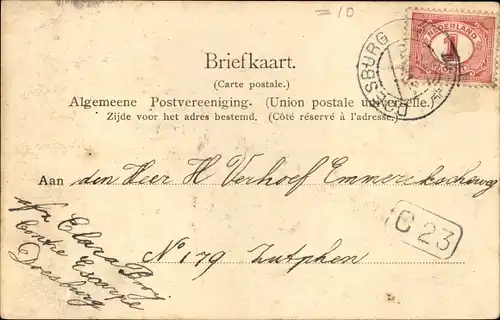 =10
NEDERLAND
1
DOESBURG
Briefkaart.
(Carte postale.)
Algemeene Postvereeniging. (Union postale universelle.)
Zijde voor het adres bestemd. (Côté réservé à l'adresse.)
Aan den Heer H Verhoef Emmerikscheweg
No 179 Zutphen
C 23
afz Clara
Contre Escarpe
Doesburg